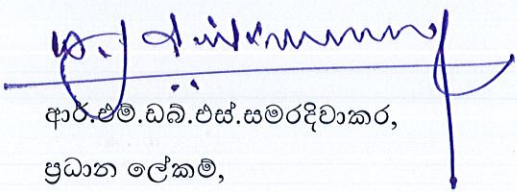 ආර්.එම්.ඩබ්.එස්.සමරදිවාකර,
ප්‍රධාන ලේකම්,